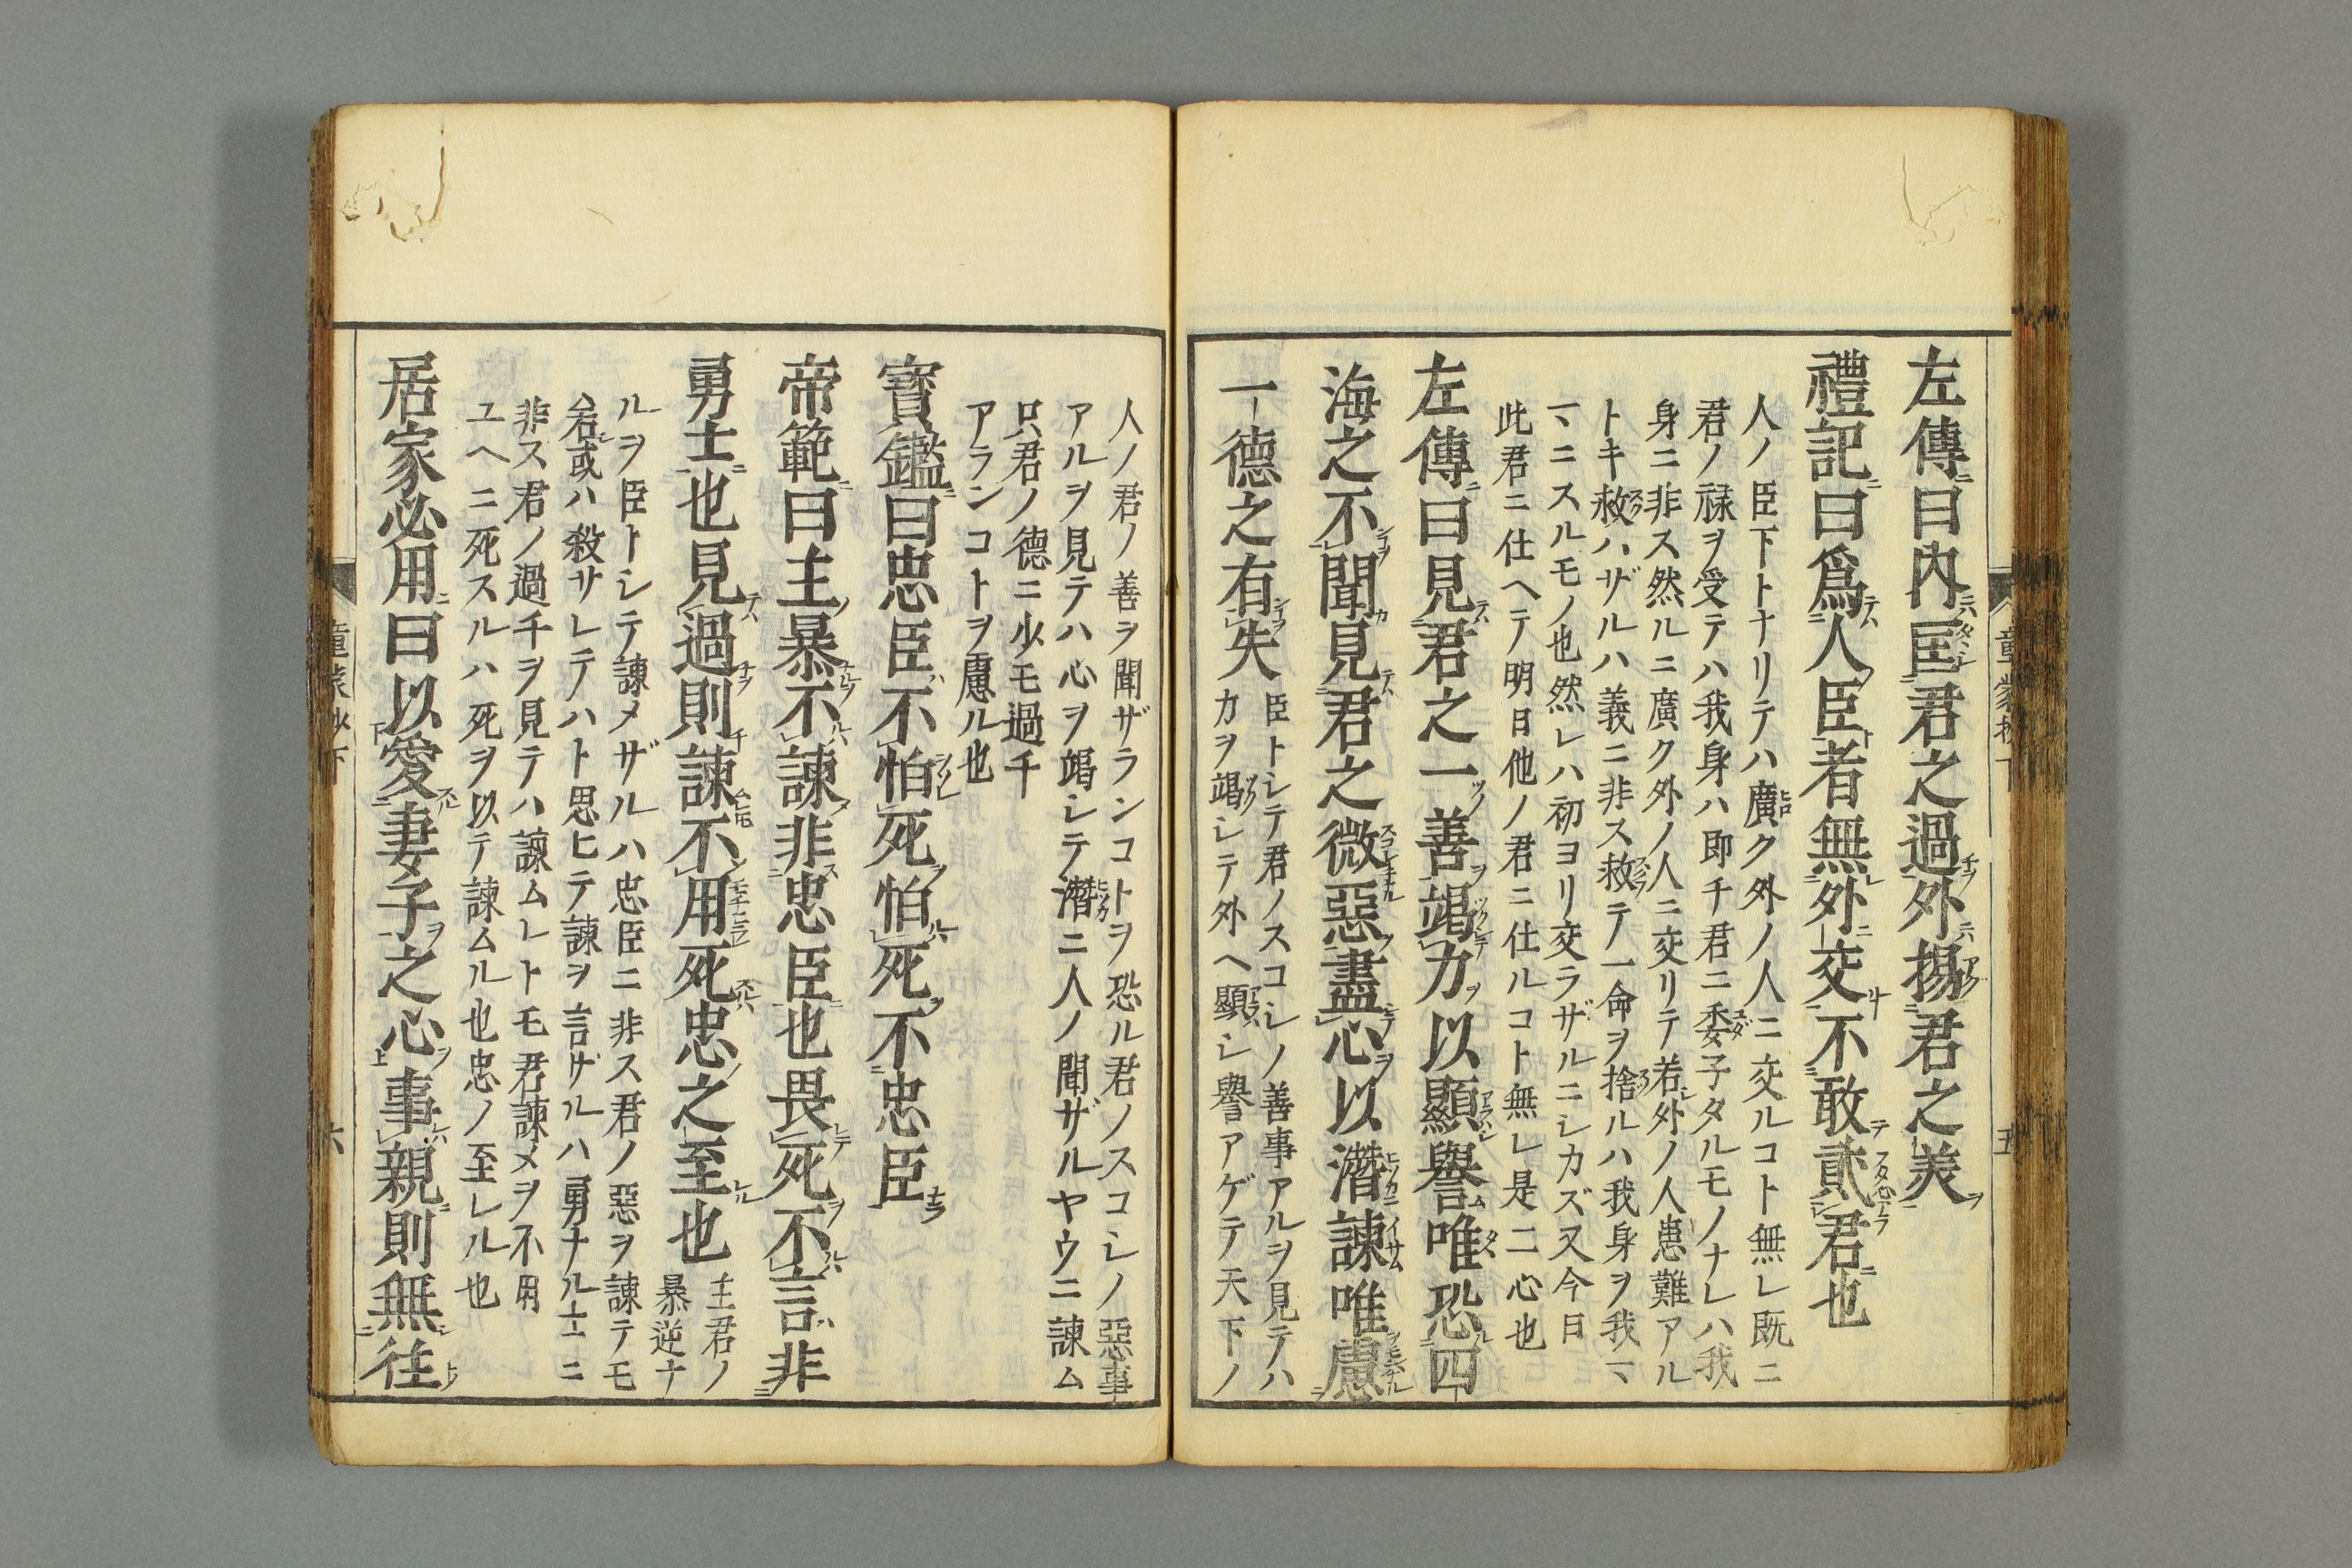 左傳曰內匡君之過外揚君之美
禮記曰爲人臣者無外交不敢貳君也
人ノ臣下トナリテハ廣ク外ノ人ニ交ルコト無レ既ニ
君ノ祿ヲ受テハ我身ハ即チ君ニ委子タルモノナレハ我
身ニ非ス然ルニ廣ク外ノ人ニ交リテ若外ノ人患難アル
トキ救ハザルハ義ニ非ス救テ一命ヲ捨ルハ我身ヲ我
マヽニスルモノ也然レハ初ヨリ交ラザルニシカズ又今日
此君ニ仕ヘテ明日他ノ君ニ仕ルコト無レ是二心也
左傳曰見君之一善竭力以顯譽唯恐四
海之不聞見君之微惡盡心以潛諫唯慮
一德之有失
臣トシテ君ノスコシノ善事アルヲ見テハ
力ヲ竭シテ外ヘ顯シ譽アゲテ天下ノ
人ノ君ノ善ヲ聞ザランコトヲ恐ル君ノスコシノ惡事
アルヲ見テハ心ヲ竭シテ潛ニ人ノ聞ザルヤウニ諫ム
只君ノ德ニ少モ過千
アランコトヲ慮ル也
寶鑑曰忠臣不怕死怕死不忠臣
帝範曰主暴不諫非忠臣也畏死不言非
勇士也見過則諫不用死忠之至也
主君ノ
暴逆ナ
ルヲ臣トシテ諫メザルハ忠臣ニ非ス君ノ惡ヲ諫テモ
若或ハ殺サレテハト思ヒテ諫ヲ言ザルハ勇ナル士ニ
非ス君ノ過千ヲ見テハ諫ムレトモ君諫メヲ不用
ユヘニ死スルハ死ヲ以テ諫ムル也忠ノ至レル也
居家必用曰以愛妻子之心事親則無往
童蒙抄下
六